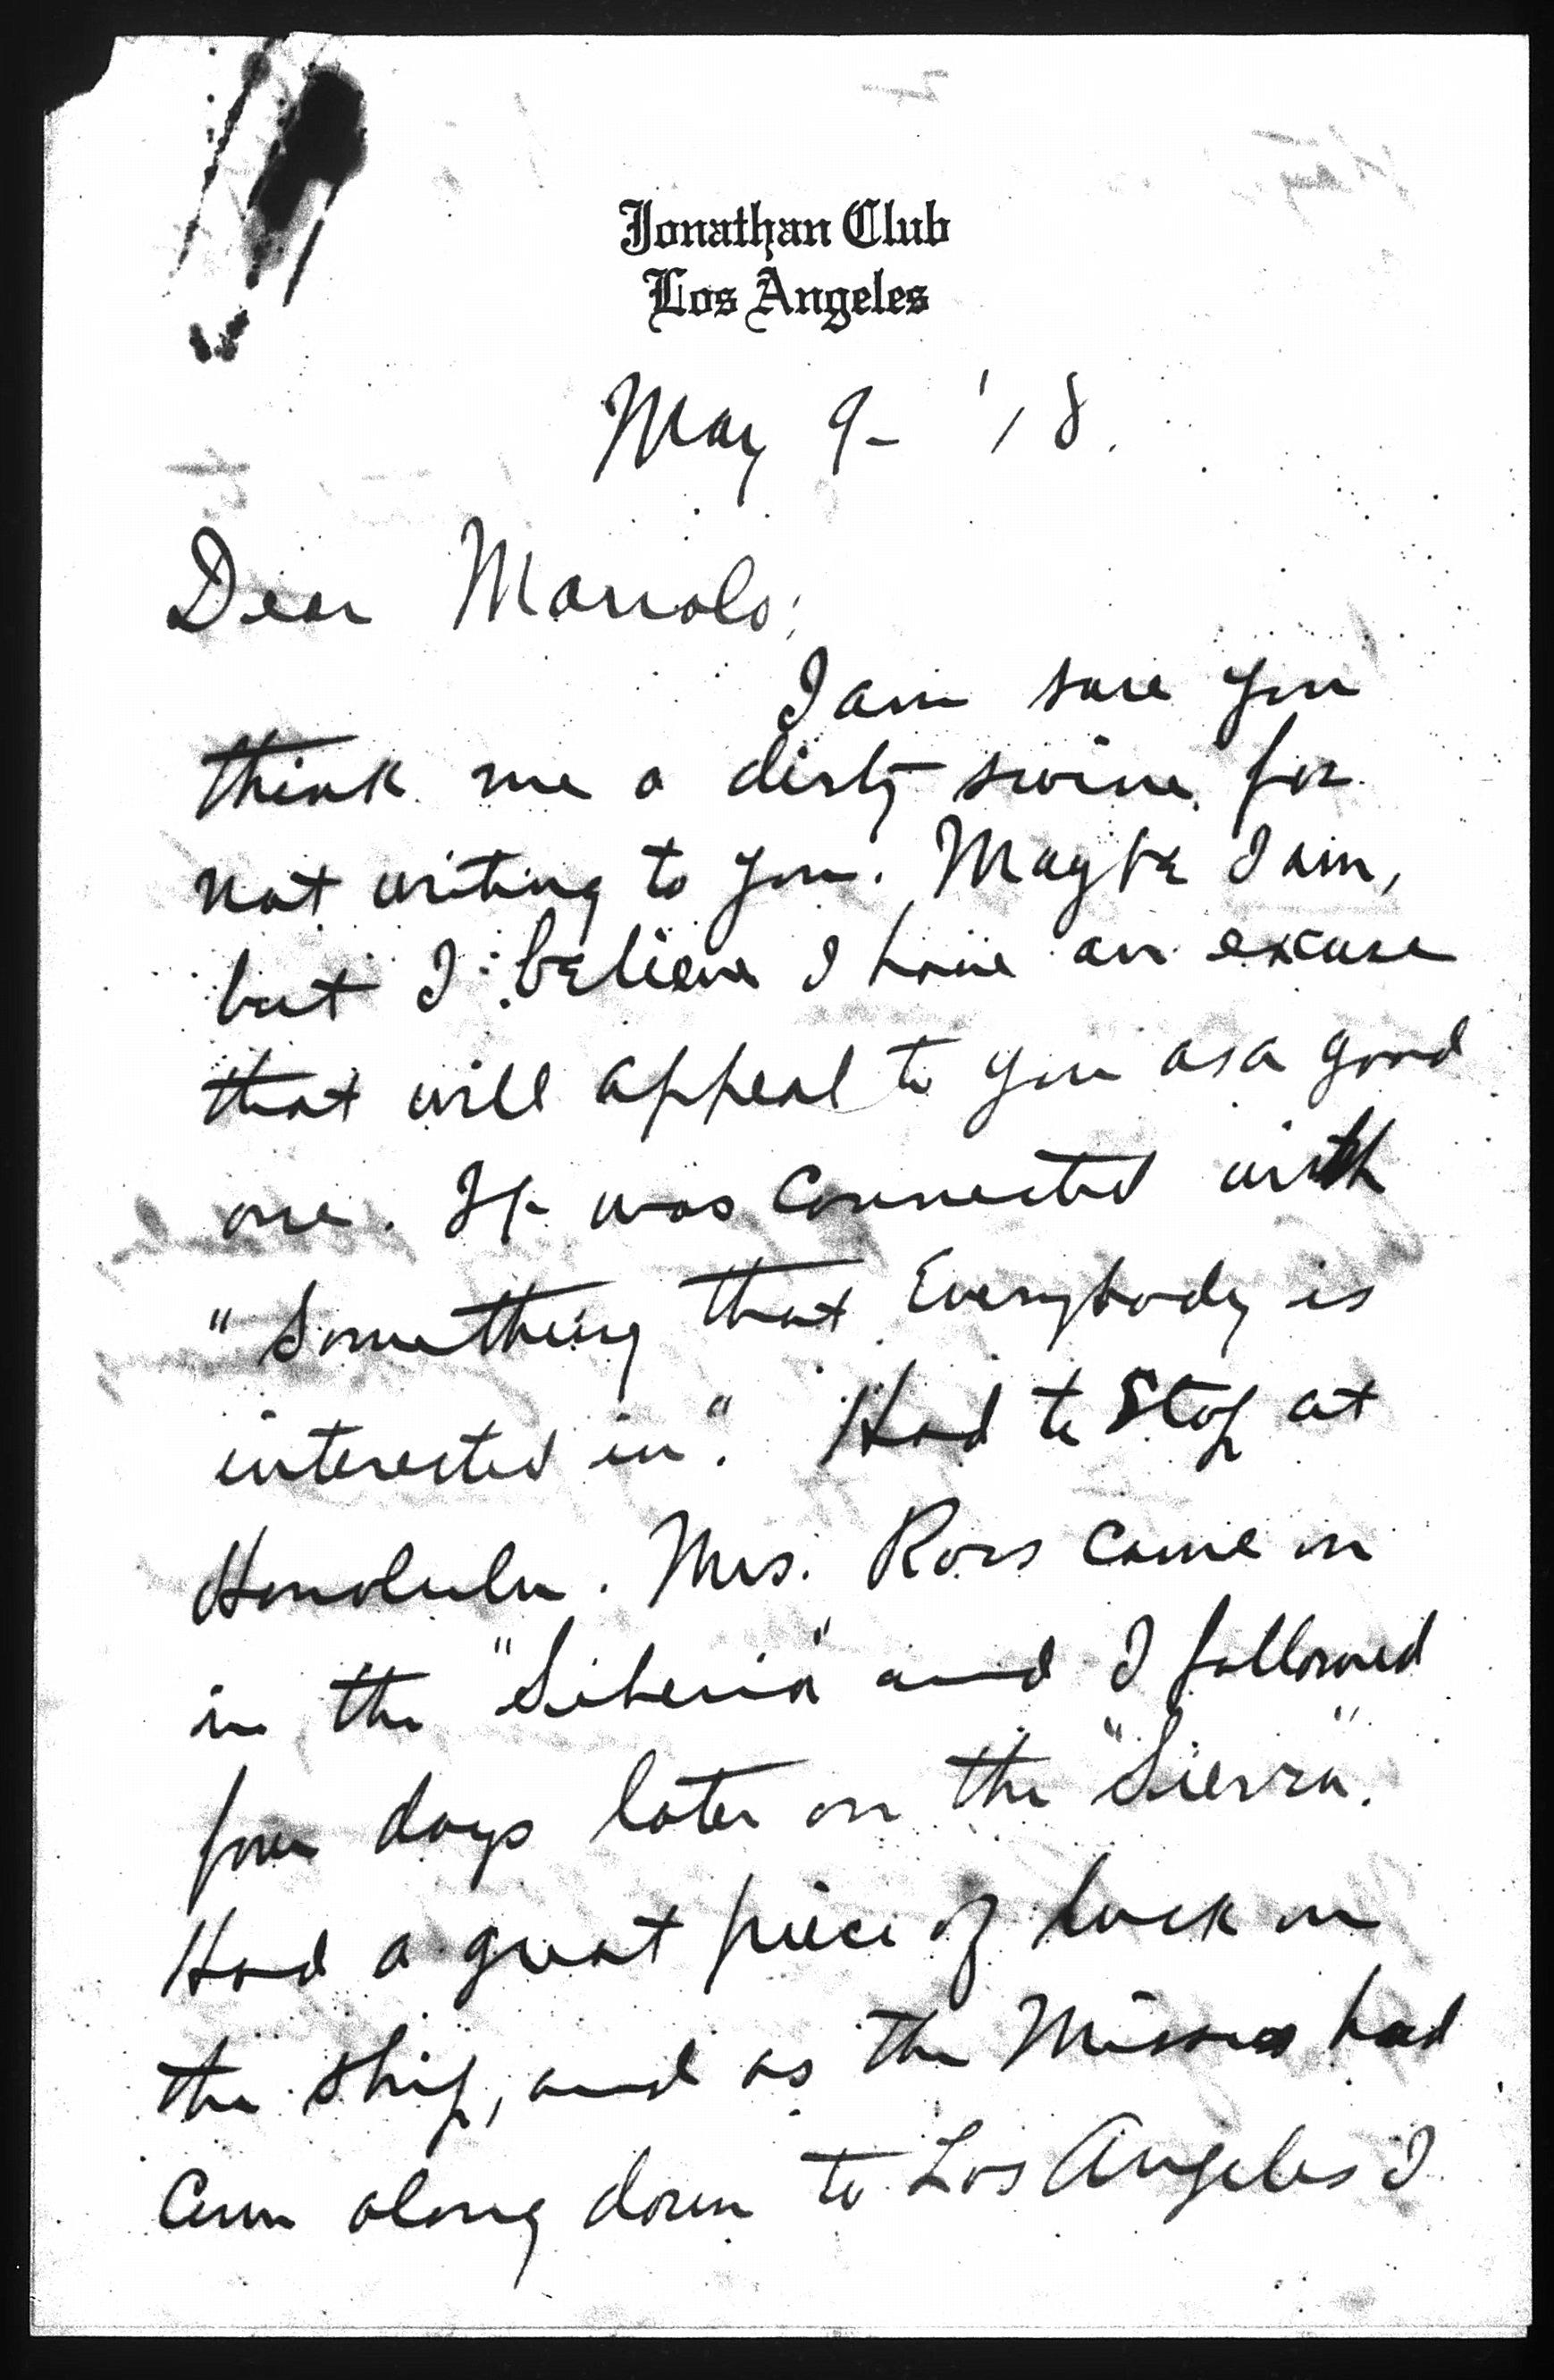 Jonathan Club
Los Angeles
May 9- '18.
Dear
I am sure you
think me a dirty swine for
not writing to you. Maybe I am,
but I believe I have an excuse
that will appeal to you as a good
one. It was connected with
"Something that Everybody is
interested in". Had to stop at
Honolulu. Mrs. Ross came in
in the "Siberia" and I followed
four days later on the "Sierra".
Had a great piece of luck on
the ship, and as the Missus had
Come along down to Los Angeles I